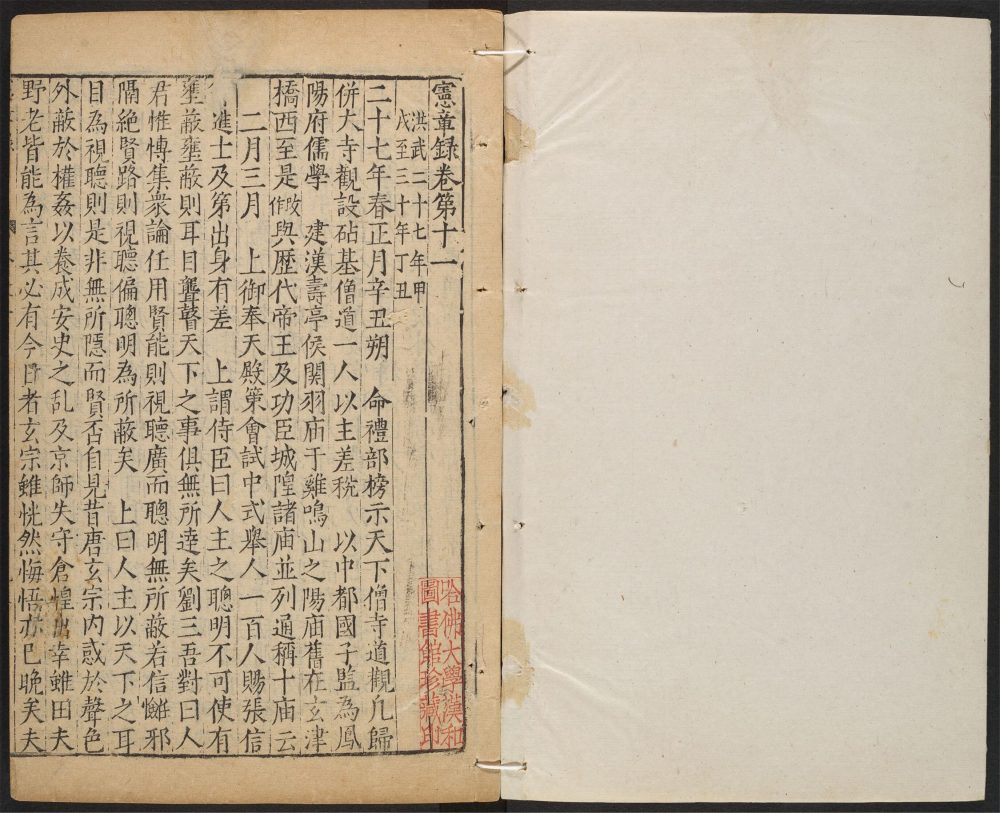 憲章錄卷第十一
洪武二十七年甲
戌至三十年丁丑
二十七年春正月辛丑朔　命禮部榜示天下僧寺道觀凡歸
併大寺觀設砧基僧道一人以主差稅　以中都國子監為鳳
陽府儒學　建漢壽亭侯関羽庙于雞鳴山之陽庙舊在玄津
橋西至是改作與歷代帝王及功臣城隍諸庙並列通稱十庙云
二月三月　上御奉天殿策會試中式舉人一百人賜張信
進士及第出身有差　上謂侍臣曰人主之聰明不可使有
壅蔽壅蔽則耳目聾瞽天下之事俱無所達矣劉三吾對曰人
君惟愽集衆論任用賢能則視聽廣而聰明無所蔽若信憸邪
隔絕賢路則視聽偏聰明為所蔽矣　上曰人主以天下之耳
目為視聽則是非無所隱而賢否自見昔唐玄宗内惑於聲色
外蔽於權姦以養成安史之乱及京師失守倉惶出幸雖田夫
野老皆能為言其必有今日者玄宗雖恍然悔悟亦已晚矣夫
哈佛大學漢和
圖書館珍藏印